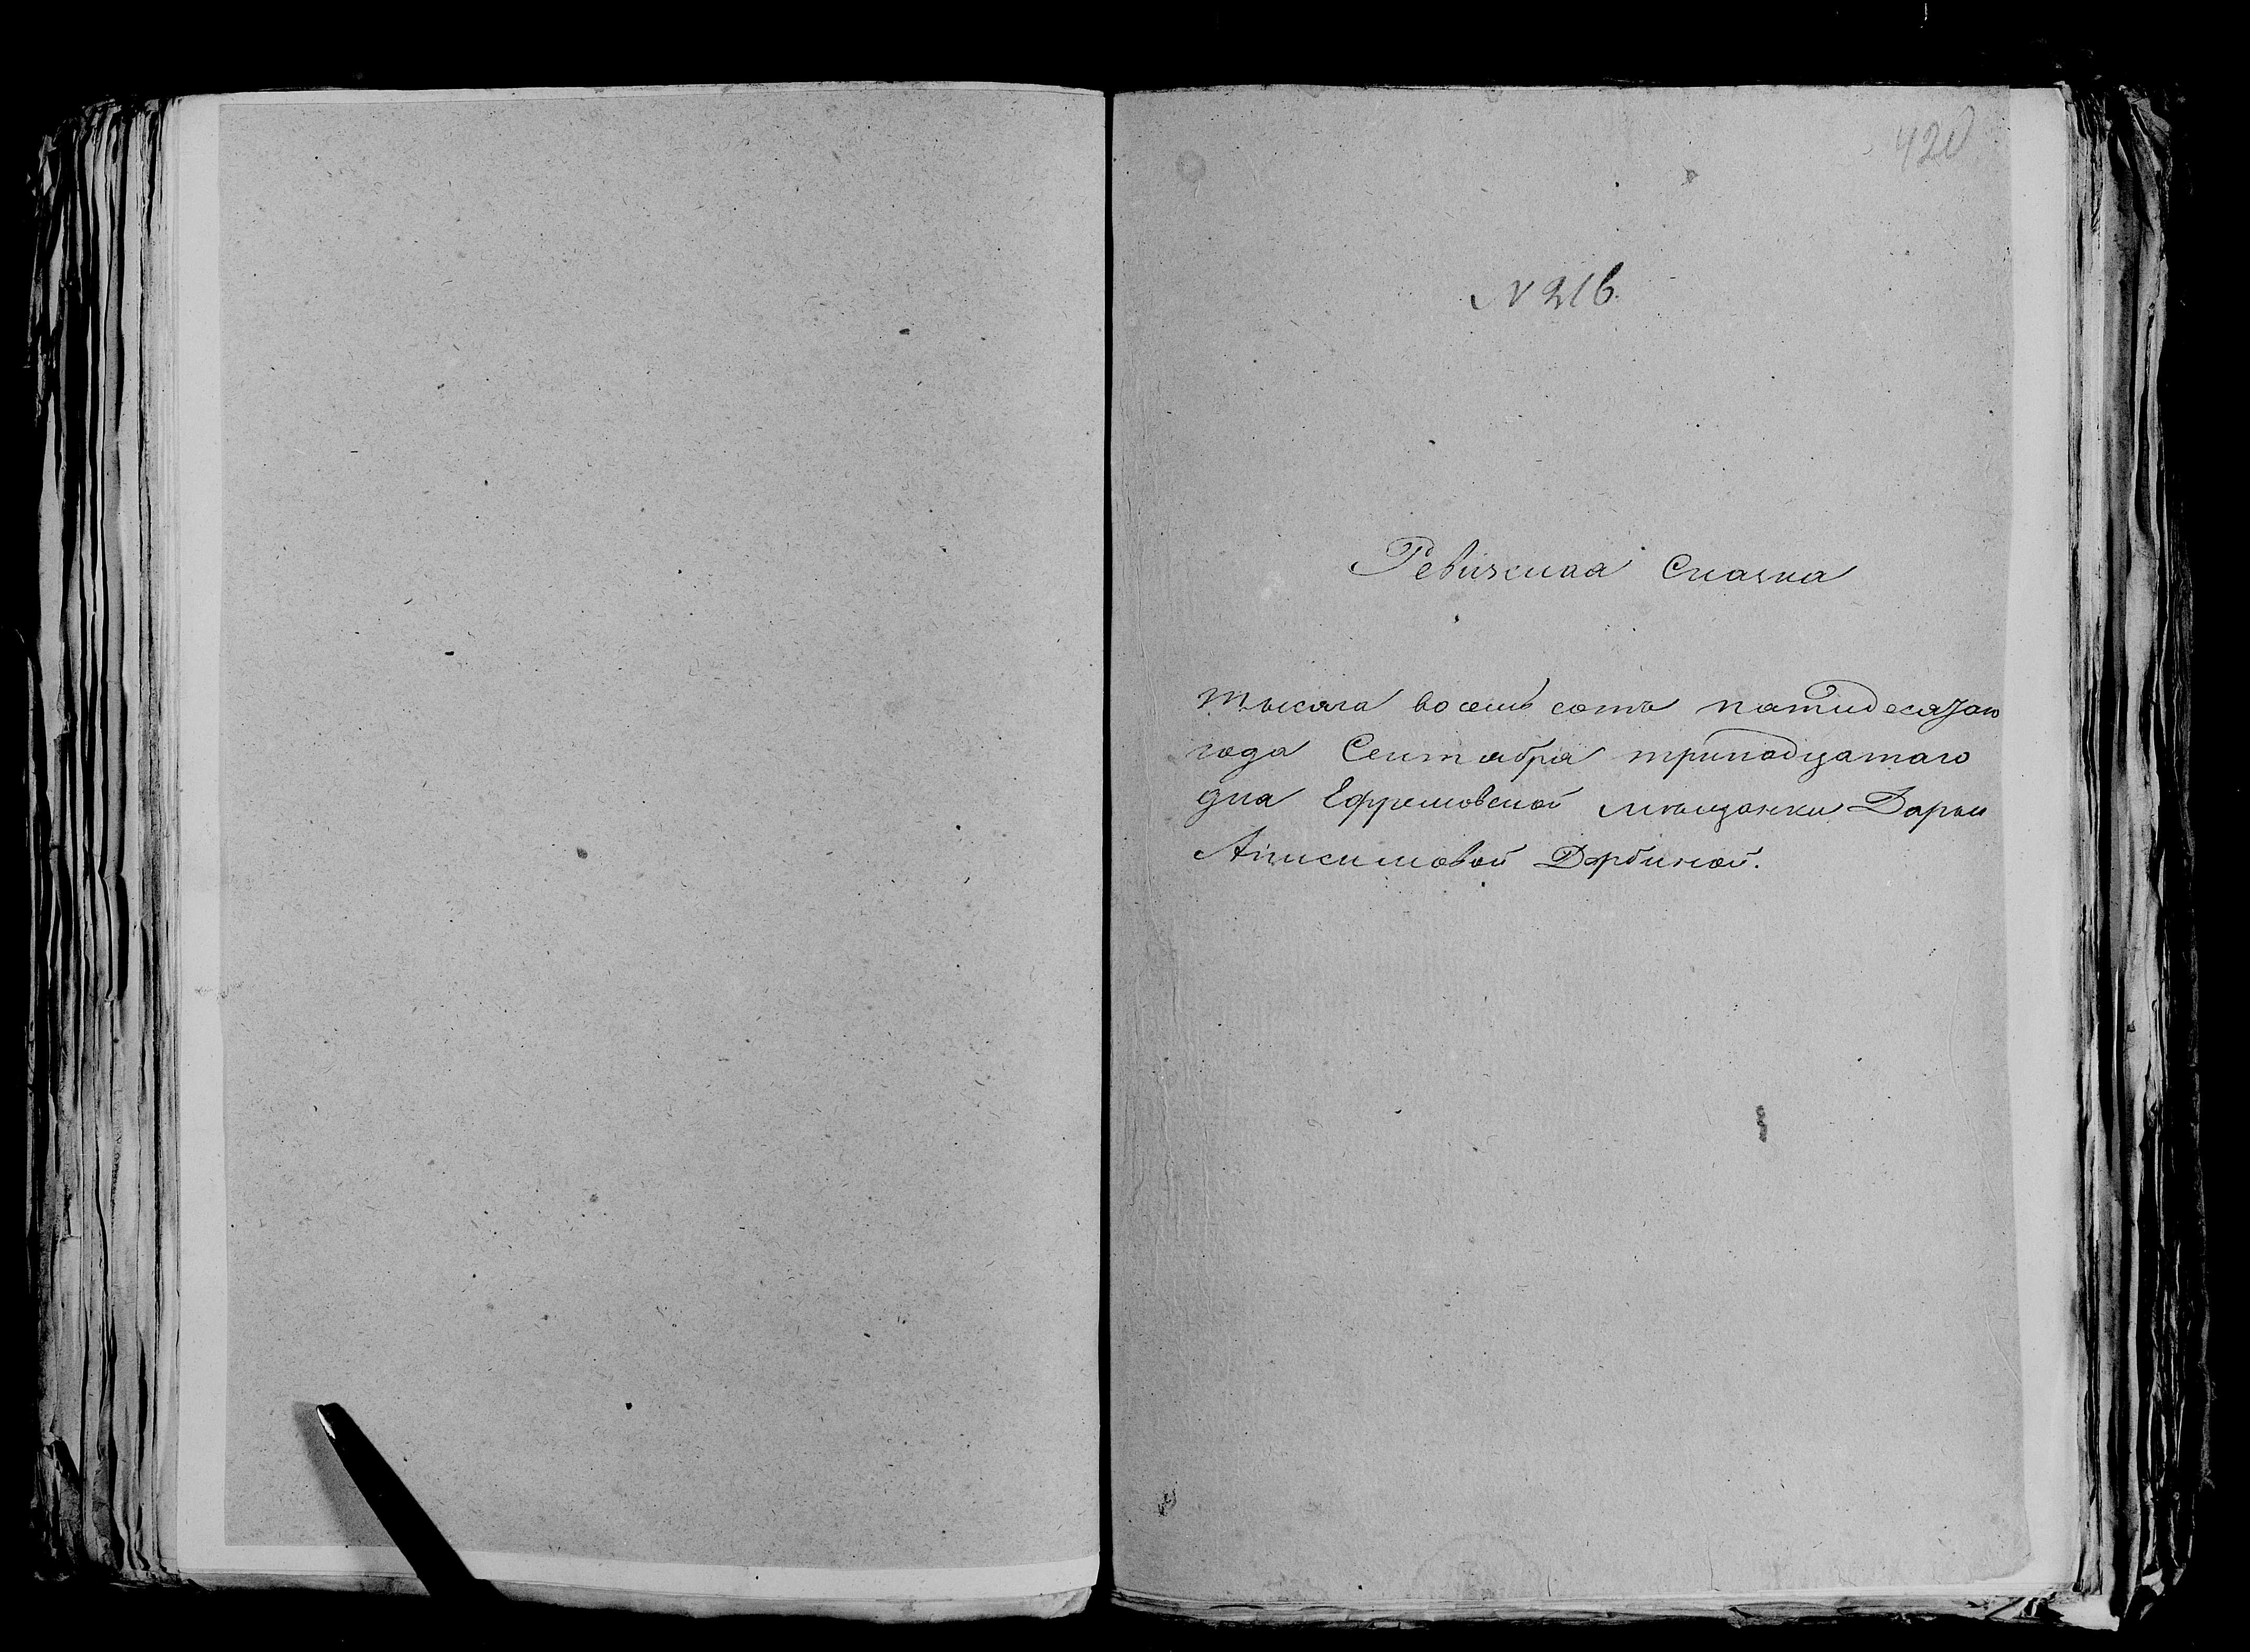 420
N 216.
Ревизская Сказка
тысяча восемь сотъ пятидесятаго
года Сентября тринадцатаго
дня Ефремовской мѣщанки Дарьи
Анисимовой Дорбиной.